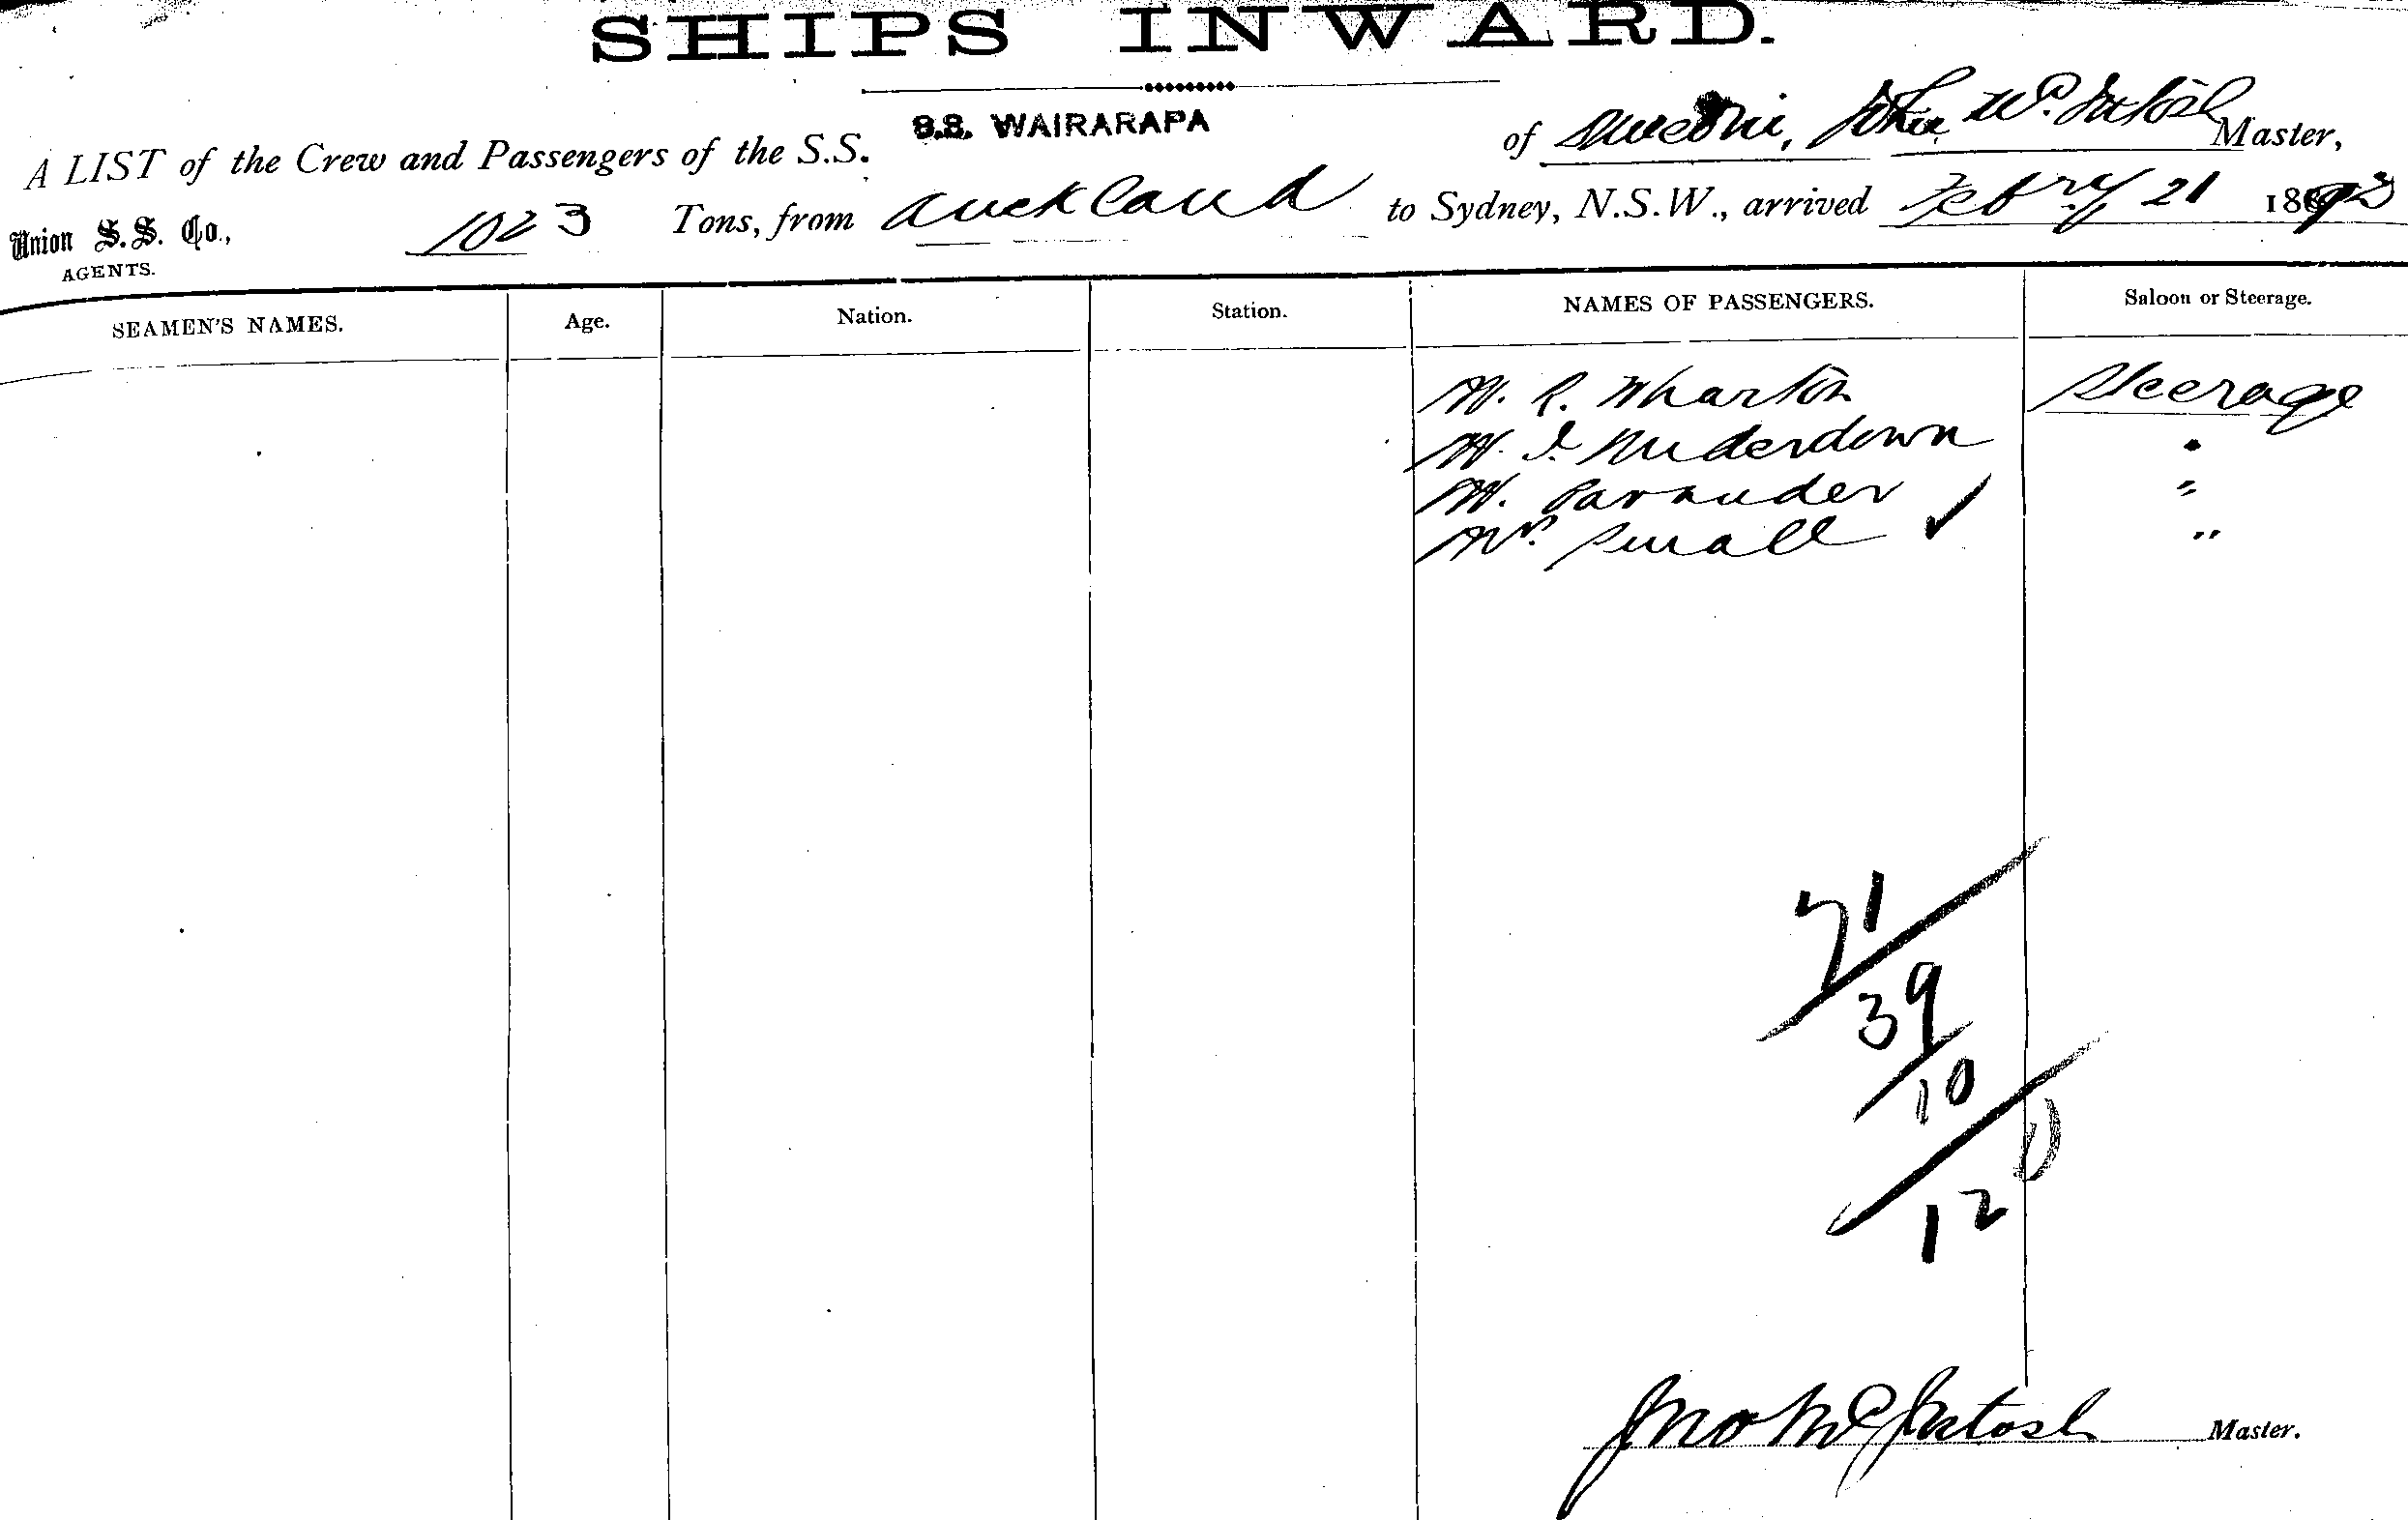 SHIPS INWARD.
A LIST of the Crew and Passengers of the S.S. S.S. WAIRARAPA of Dunedin, John McIntosh Master,
Union S.S. Co., AGENTS. 1023 Tons, from Auckland to Sydney, N.S.W., arrived Febry 21 1893
SEAMEN'S NAMES. Age. Nation. Station. NAMES OF PASSENGERS. Saloon or Steerage.
M. R. Wharton Steerage
M. J. Underdown "
M. "
Mr. Small ✓ "
71
39
10
120
Jno McIntosh Master.